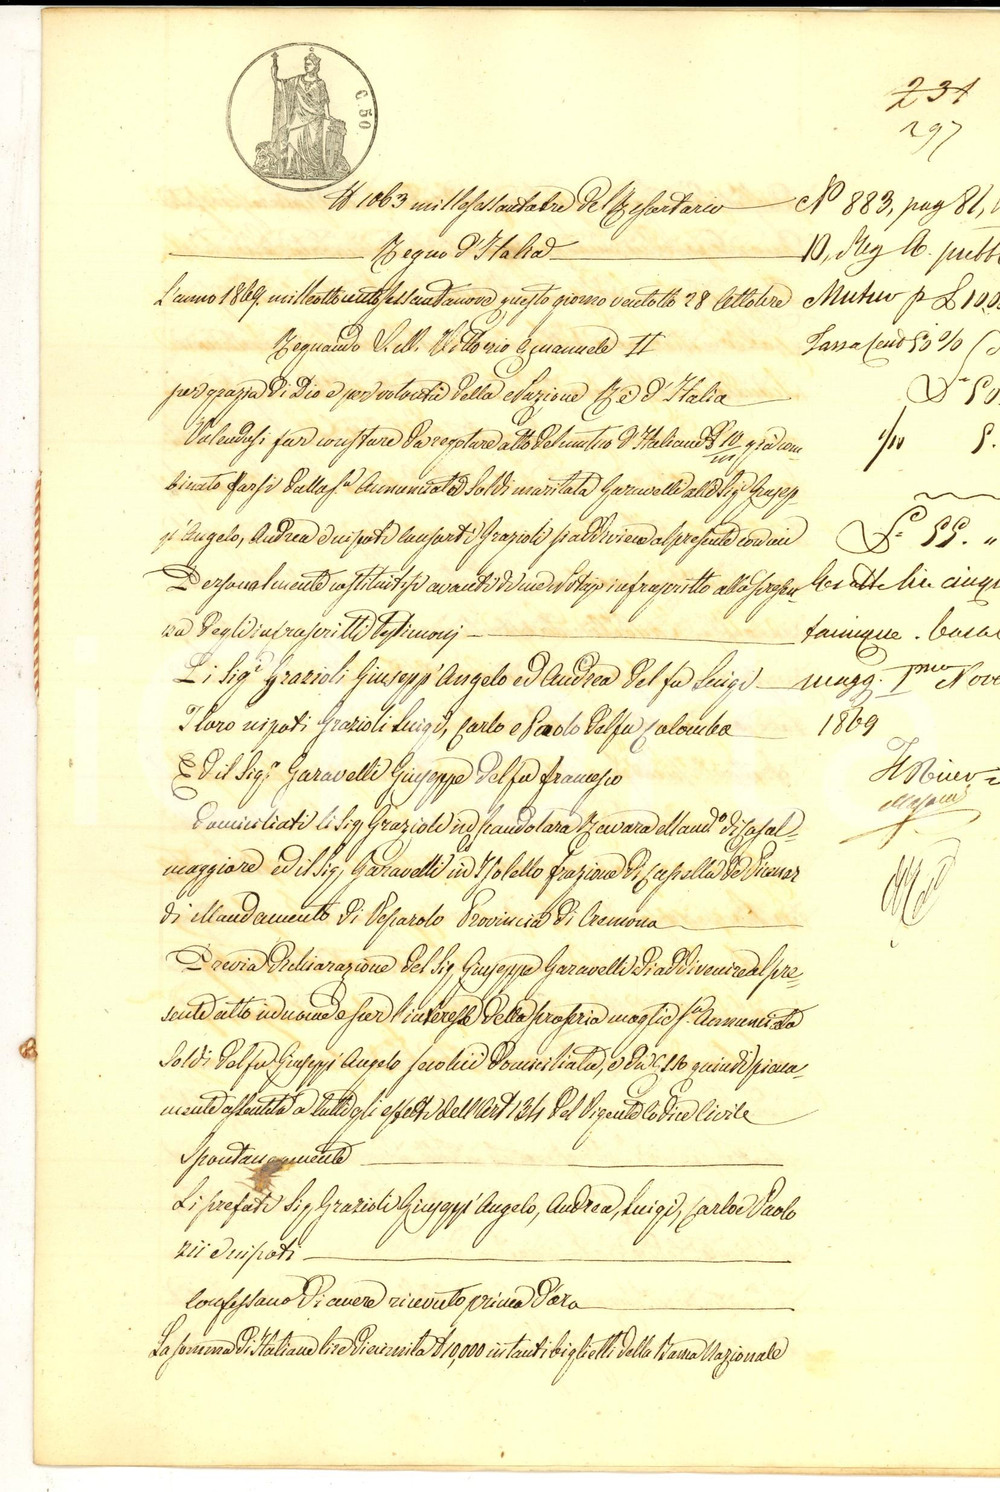 C. 50
231
297
N 1063 millesessantatre del Repertorio
Regno d'Italia
L'anno 1869 milleottocentosessantanove, questo giorno ventotto 28 Ottobre
Regnando S. M. Vittorio Emanuele II
per grazia di Dio e per volontà della Nazione Re d'Italia
Volendosi far constare da regolare atto del mutuo d'Italiane £ 10 m gia com-
binato farsi dalla Sª Annunciata Soldi maritata Garavelli alli Sigi Giusepp'
Angelo, Andrea e nipoti consorti Grazioli si addiviene al presente con cui
Personalmente costituitisi avanti di me Notajo infrascritto alla presen-
za degli infrascritti testimonj
Li Sigi Grazioli Giusepp' Angelo ed Andrea del fu Luigi
I loro nipoti Grazioli Luigi, Carlo e Paolo del fu Colombo
Ed il Sigr Garavelli Giuseppe del fu Francesco
domiciliati li Sig Grazioli in Scandolara Ravara Mandº di Casal-
maggiore ed il Sig. Garavelli in frazione di Cappella de' Picenar
di Mandamento di Pescarolo Provincia di Cremona
Previa dichiarazione del Sig Giuseppe Garavelli di addivenire al pre-
sente atto in nome e per l'interesse della propria moglie Sª Annunciata
Soldi del fu Giusepp' Angelo seco lui domiciliata, e da quindi piena-
mente assentita a tutti gli effetti dell'Art 134 del Vigente Codice Civile
Spontaneamente
Li prefati Sig Grazioli Giusepp' Angelo, Andrea, Luigi, Carlo e Paolo
zii e nipoti
confessano di avere ricevuto prima d'ora
La somma di Italiane lire diecimila £ 10,000 in tanti biglietti della Banca Nazionale
N° 883, pag 81,
10, Reg A. pubb
Mutuo p £ 10.0
Tassa Cent 50 %
£ 50
1/10 5.
£ 55. "
Lire cinqu
tacinque. Casal
magg. Pmo Nove
1869
Il Ricev